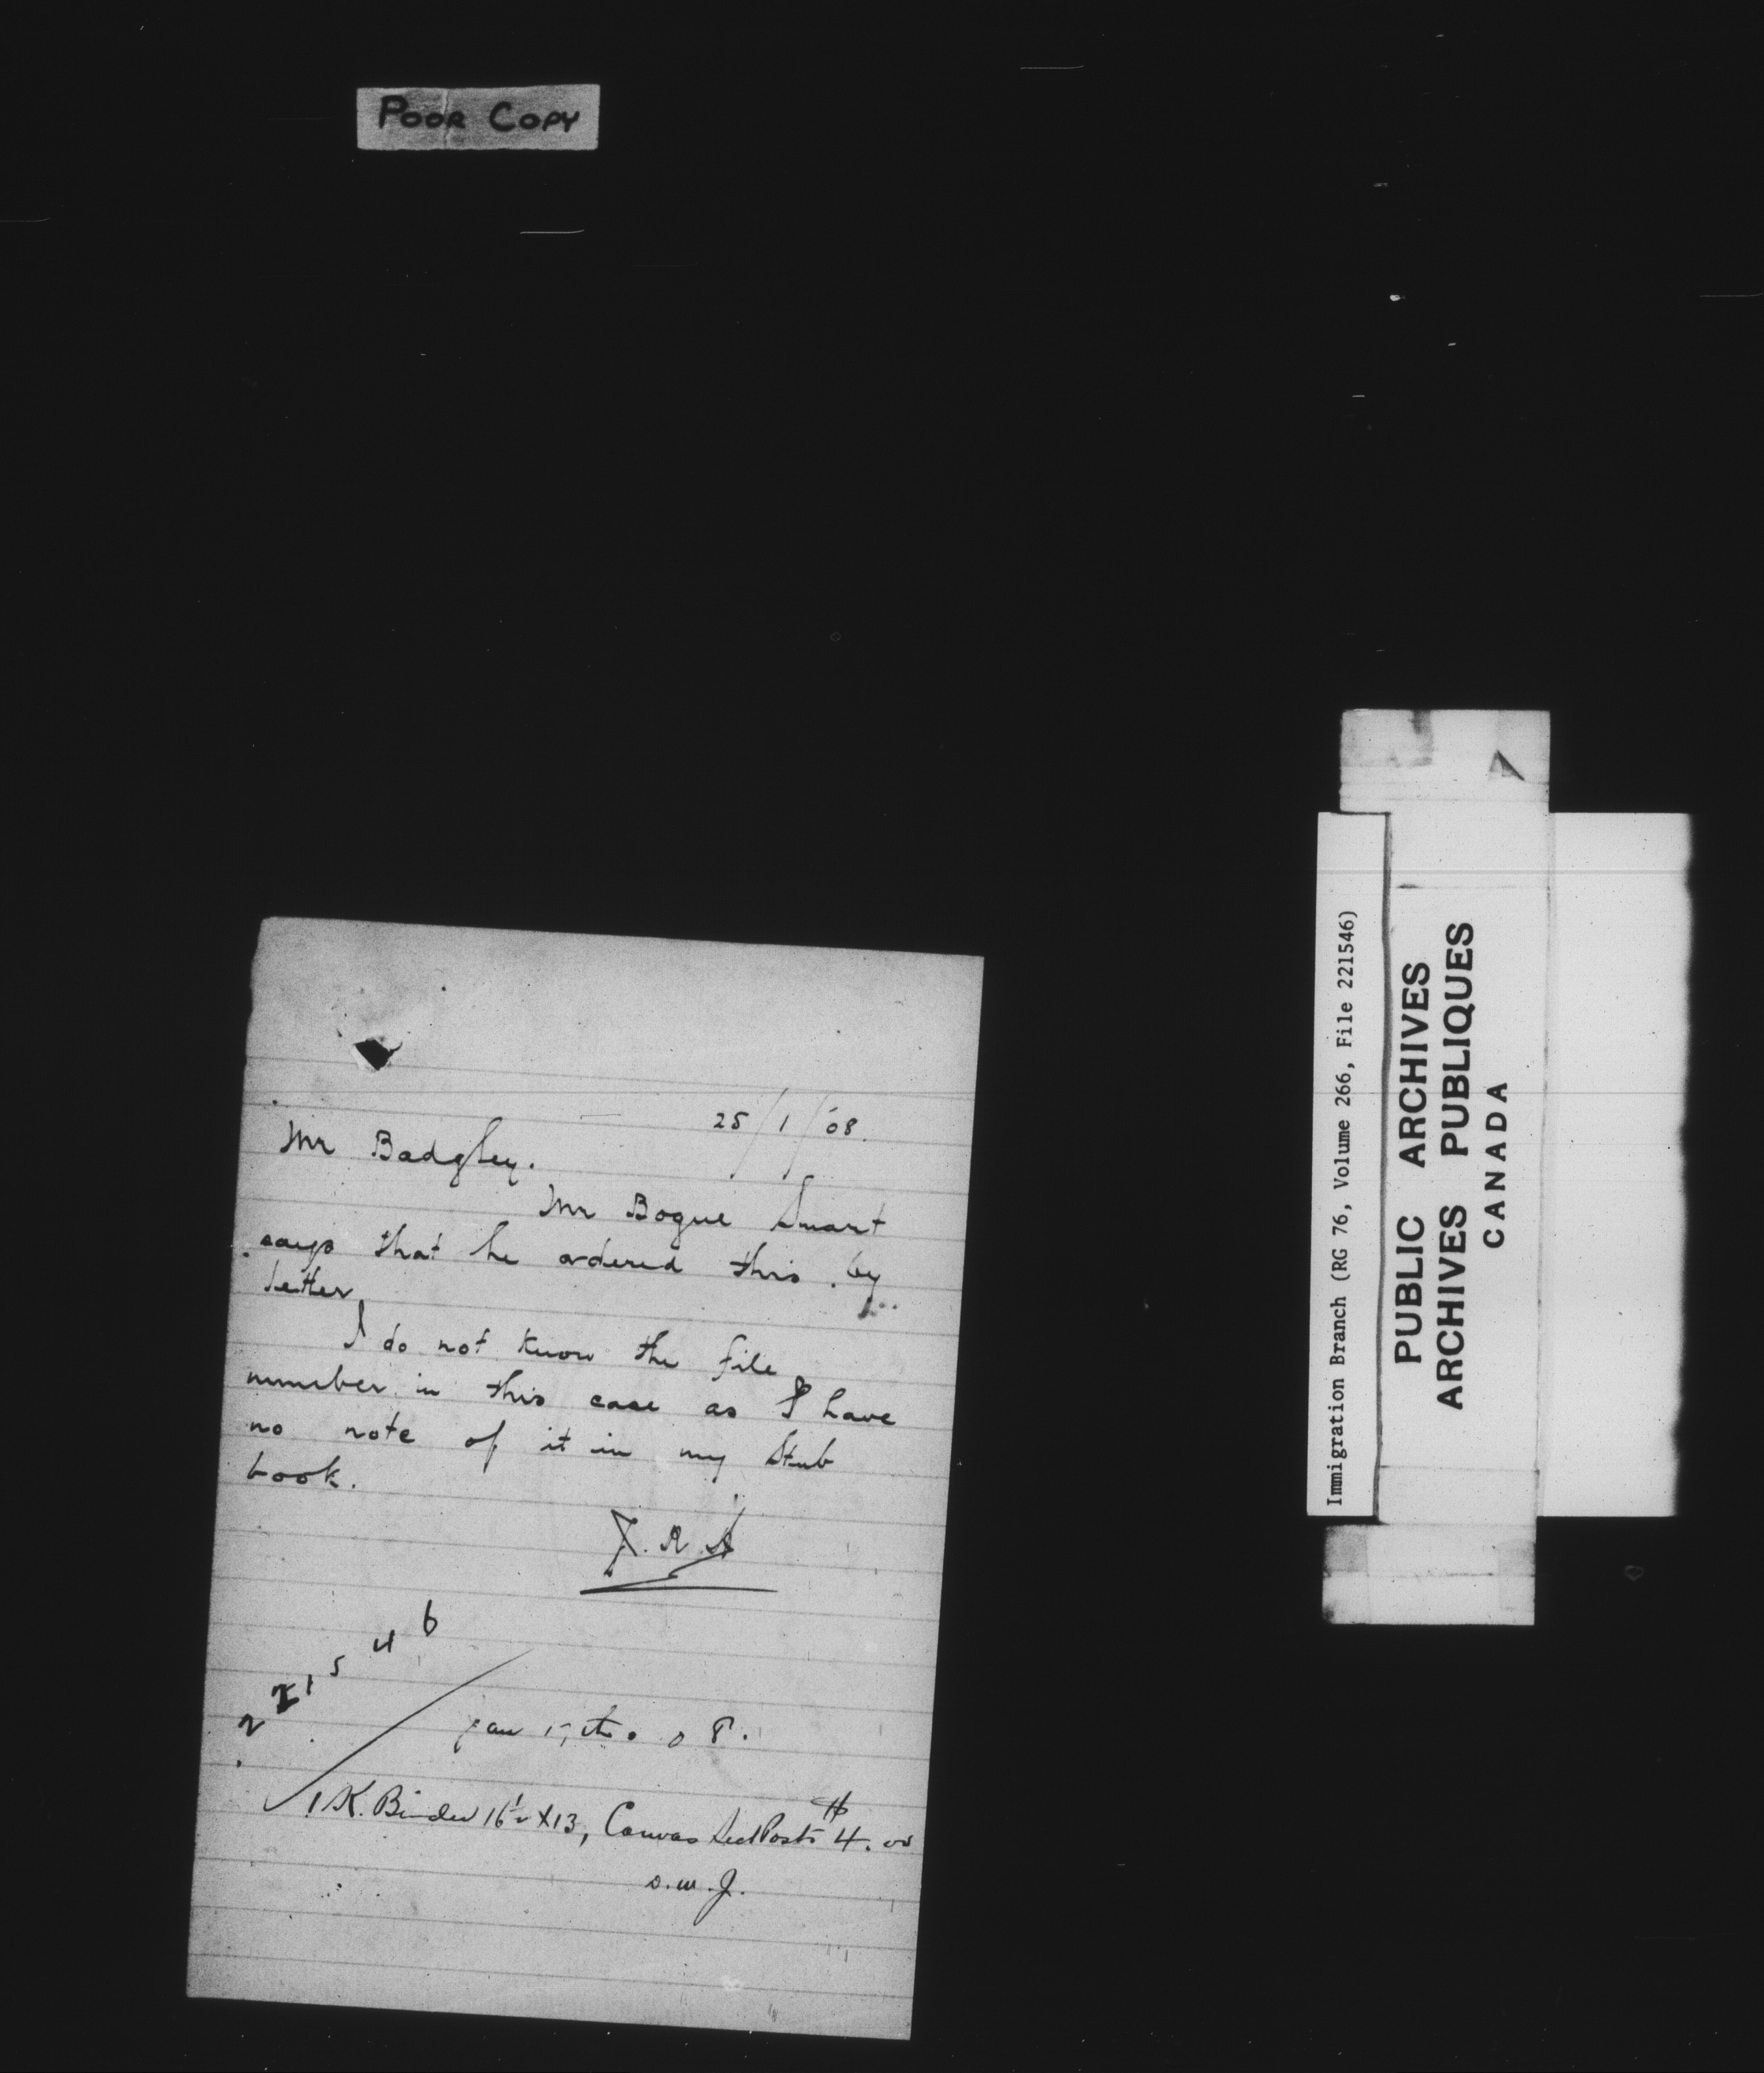 POOR COPY
25/1/'08.
Mr Badgley.
Mr Bogue Smart
says that he ordered this by
letter
I do not know the file
number in this case as I have
no note of it in my Stub
book.
221546
Jan 15th 08.
1 K. Binder 16½ X 13, Canvas $4.00
Immigration Branch (RG 76, Volume 266, File 221546)
PUBLIC ARCHIVES
ARCHIVES PUBLIQUES
CANADA